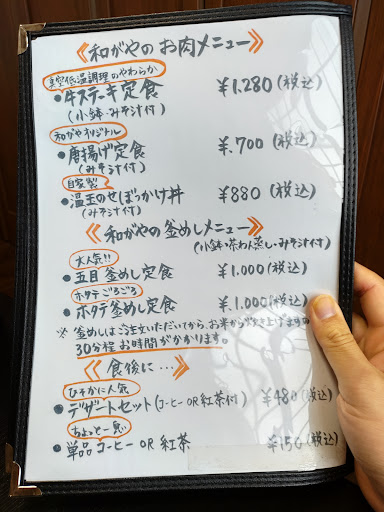 《和がやの お肉メニュー》
真空低温調理のやわらか
・牛ステーキ定食 ¥1.280(税込)
(小鉢・みそ汁付)
和がやオリジナル
・唐揚げ定食 ¥.700(税込)
(みそ汁付)
自家製
・温玉のせぶっかけ丼 ¥880(税込)
(みそ汁付)
《和がやの釜めしメニュー》
(小鉢・茶わん蒸し・みそ汁付)
大人気!!
・五目釜めし定食 ¥1.000(税込)
ホタテごろごろ
・ホタテ釜めし定食 ¥1.000(税込)
※ 釜めしはご注文いただいてから、お米から炊き上げますので
30分程お時間がかかります。
《食後に…》
ひそかに人気
・デザートセット(コーヒーOR紅茶付) ¥480(税込)
ちょっと一息
・単品コーヒーOR紅茶 ¥150(税込)